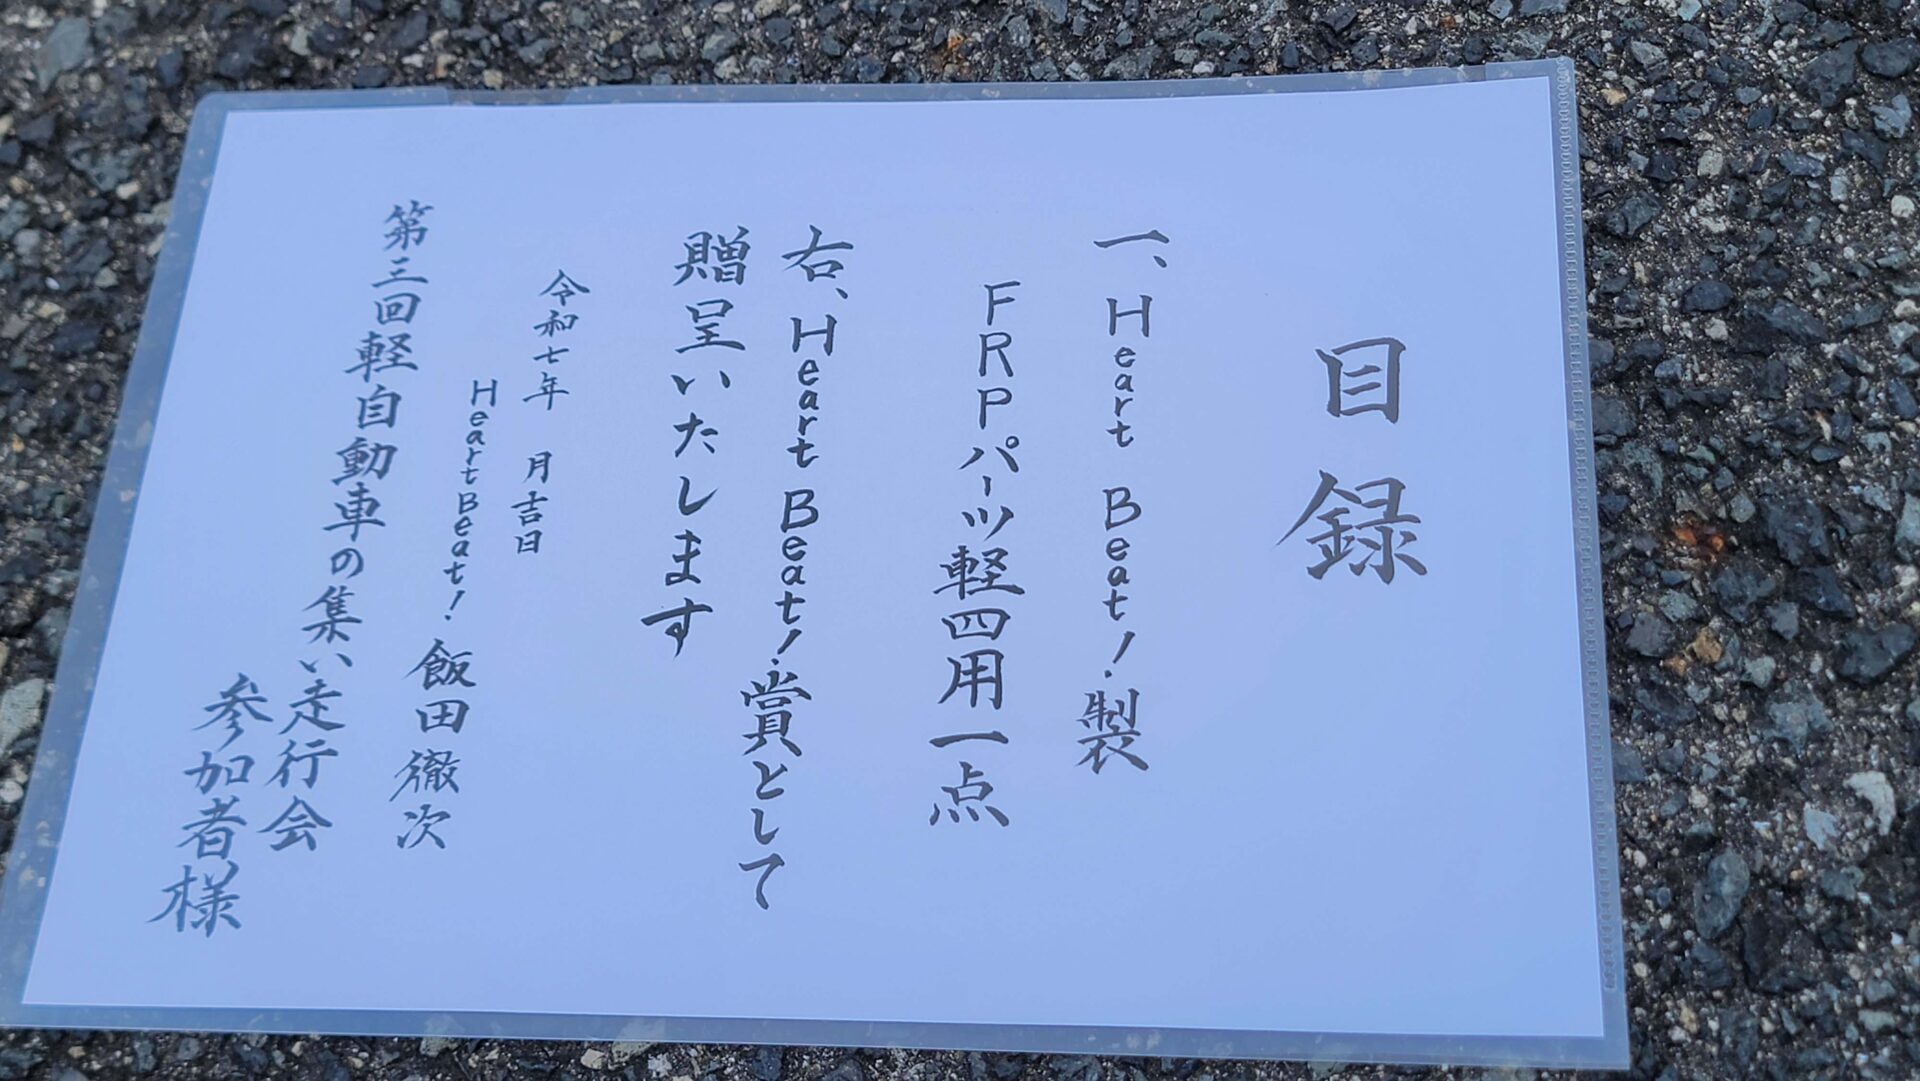 目録
一、Heart Beat!製
FRPパーツ軽四用一点
右、Heart Beat!賞として
贈呈いたします
令和七年 月吉日
Heart Beat! 飯田徹次
第三回軽自動車の集い走行会
参加者様